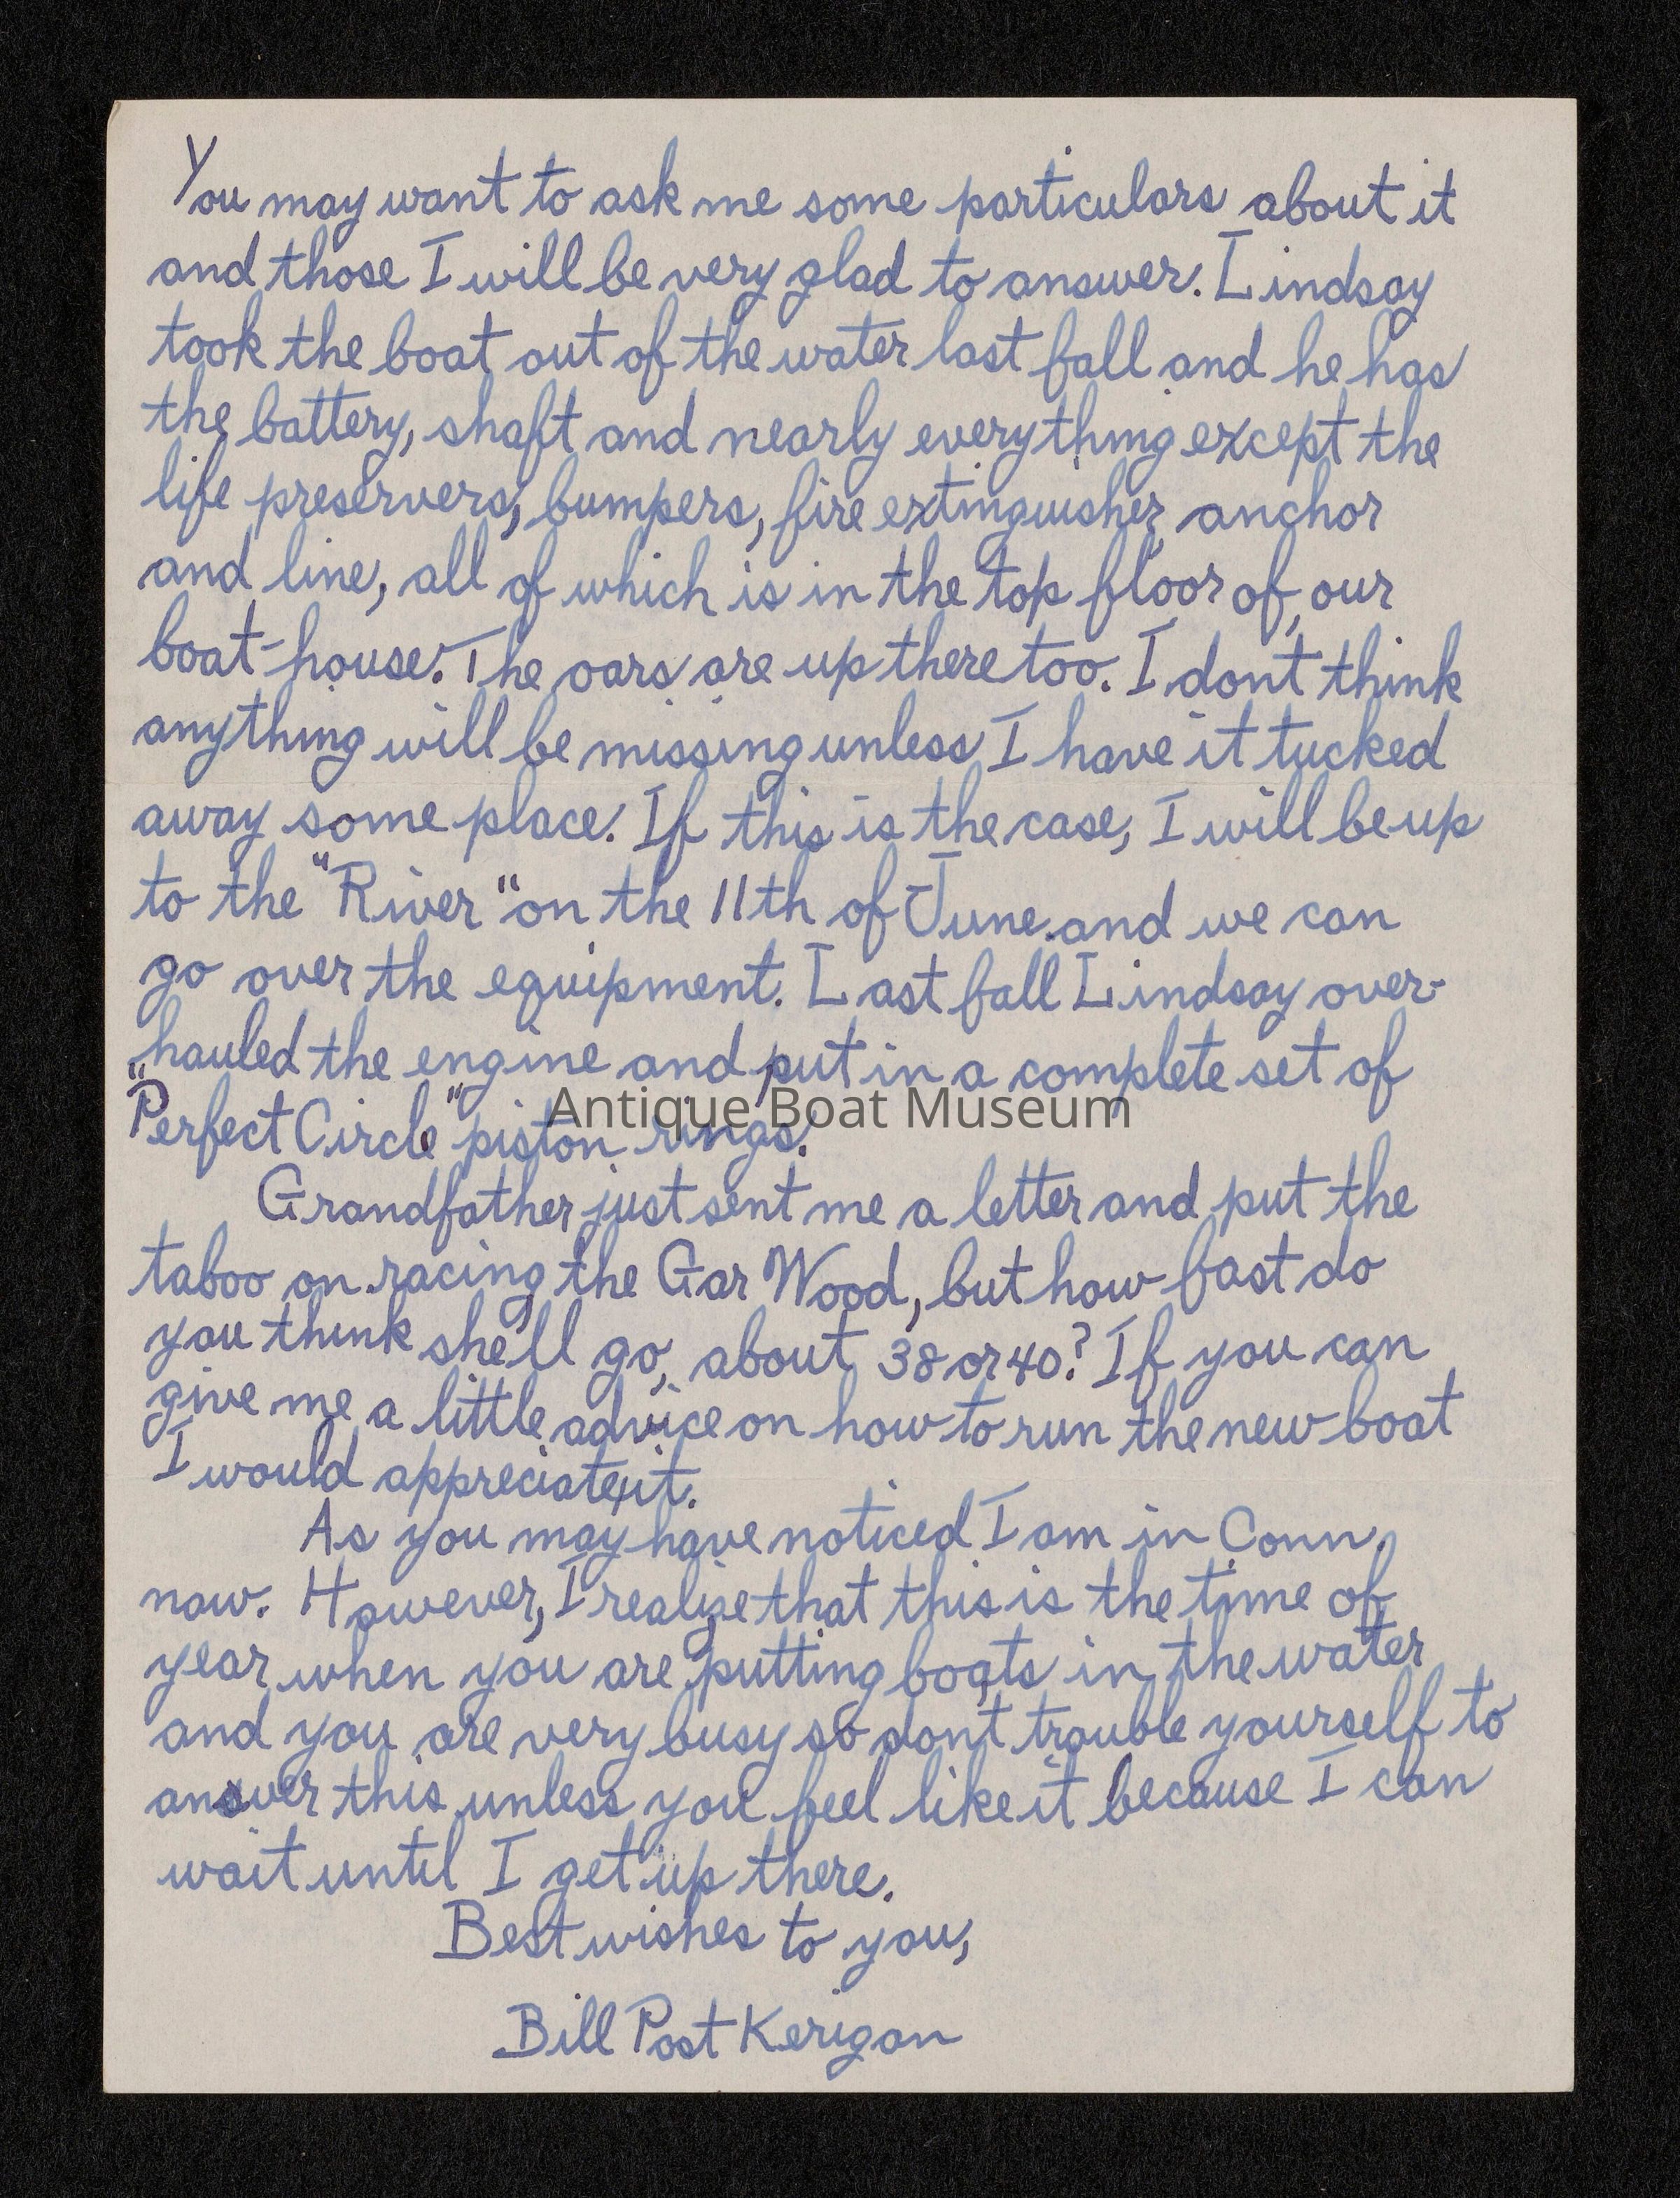 You may want to ask me some particulars about it
and those I will be very glad to answer. Lindsay
took the boat out of the water last fall and he has
the battery, shaft and nearly everything except the
life preservers, bumpers, fire extinguisher, anchor
and line, all of which is in the top floor of our
boat-house. The oars are up there too. I dont think
anything will be missing unless I have it tucked
away some place. If this is the case, I will be up
to the "River" on the 11th of June and we can
go over the equipment. Last fall Lindsay over-
hauled the engine and put in a complete set of
"Perfect Circle" piston rings.
Antique Boat Museum
Grandfather just sent me a letter and put the
taboo on racing the Gar Wood, but how fast do
you think she'll go, about 38 or 40? If you can
give me a little advice on how to run the new boat
I would appreciate it.
As you may have noticed I am in Conn.
now. However, I realize that this is the time of
year when you are putting boats in the water
and you are very busy so don't trouble yourself to
answer this unless you feel like it because I can
wait until I get up there.
Best wishes to you,
Bill Post Kerigan